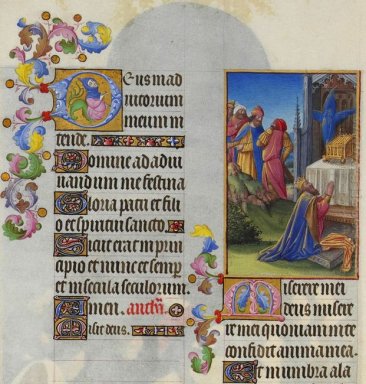 Deus in ad
iutorium
meum in
tende.
Domine ad adiu
uandum me festina
Gloria patri et fili
o et spiritui sancto
Sicut erat in prin
cipio et nunc et semper
et in secula seculorum.
Amen.
Misit deus.
Miserere mei
deus misere
re mei quoniam in te
confidit anima mea.
Et in umbra ala